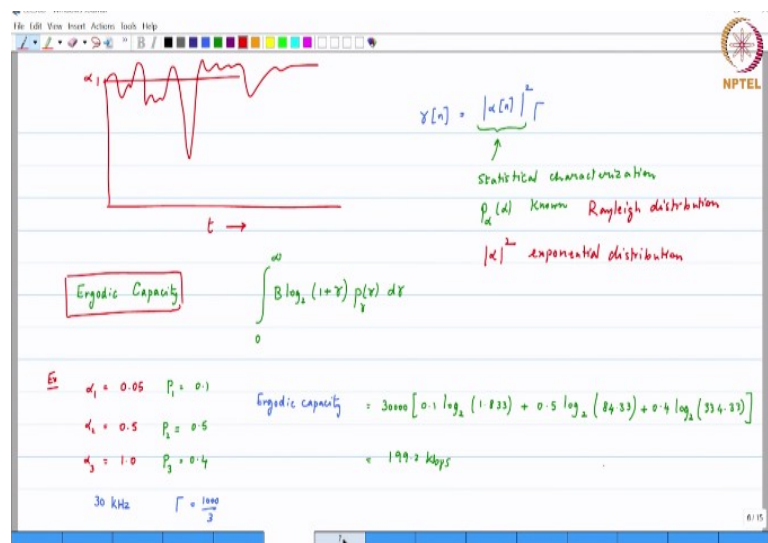 File Edit View Insert Actions Tools Help
NPTEL
α₁
t →
γ[n] = |α[n]|² Γ
Statistical characterization
p_α(α) known Rayleigh distribution
|α|² exponential distribution
Ergodic Capacity
∫₀^∞ B log₂ (1+γ) p_γ(γ) dγ
Ex
α₁ = 0.05 P₁ = 0.1
α₂ = 0.5 P₂ = 0.5
α₃ = 1.0 P₃ = 0.4
30 kHz Γ = 1000/3
Ergodic capacity = 30000 [0.1 log₂ (1.833) + 0.5 log₂ (84.33) + 0.4 log₂ (334.33)]
= 199.2 kbps
6/15